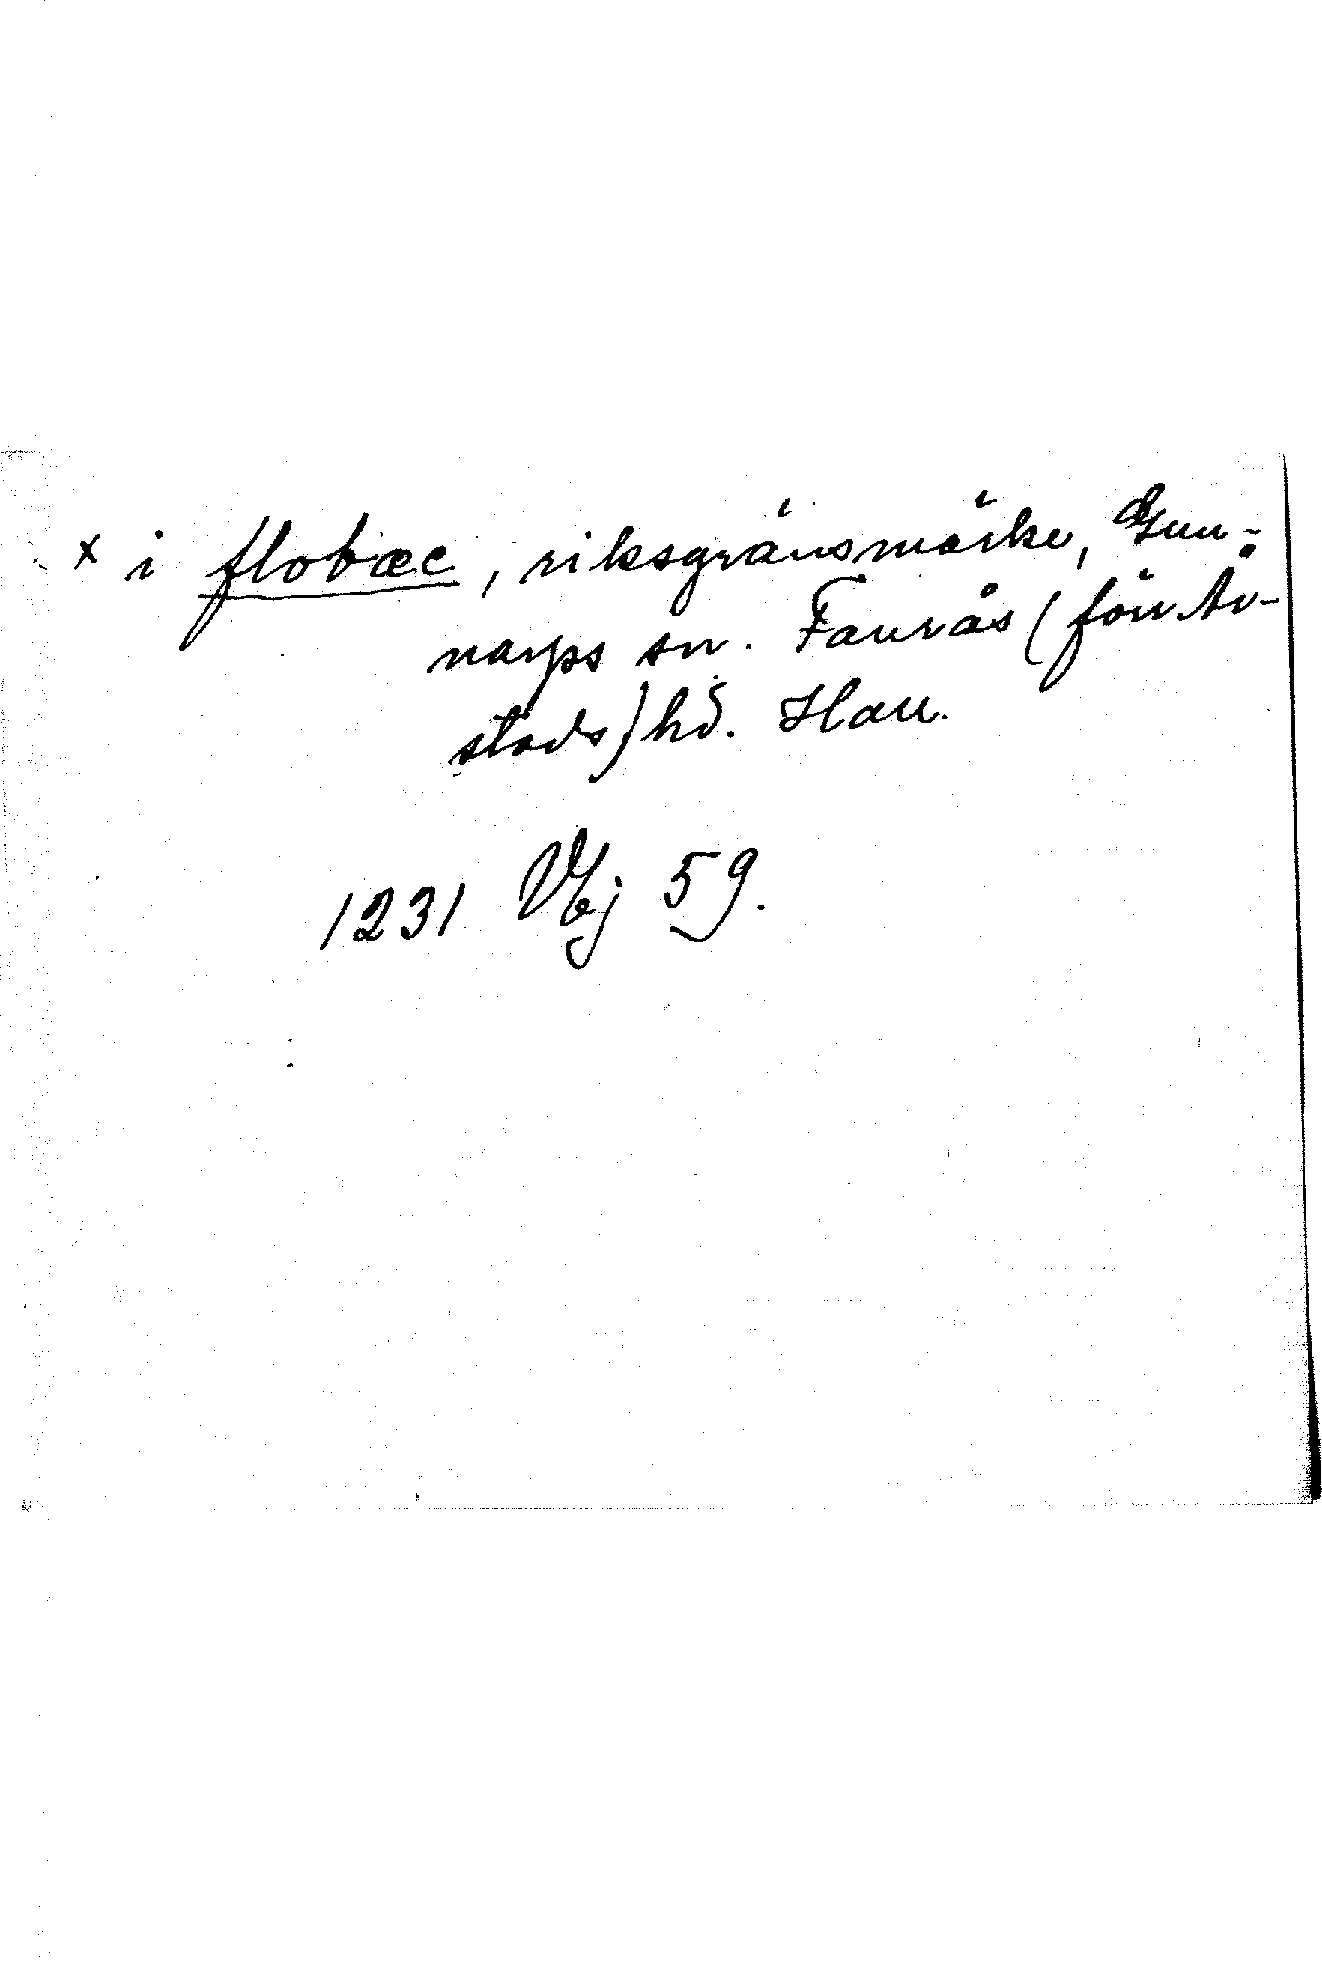 x i flobæc, riksgränsmärke, Gun-
narps sn. Faurås (förr År-
stads) hd. Hall.
1231 Vbj 59.